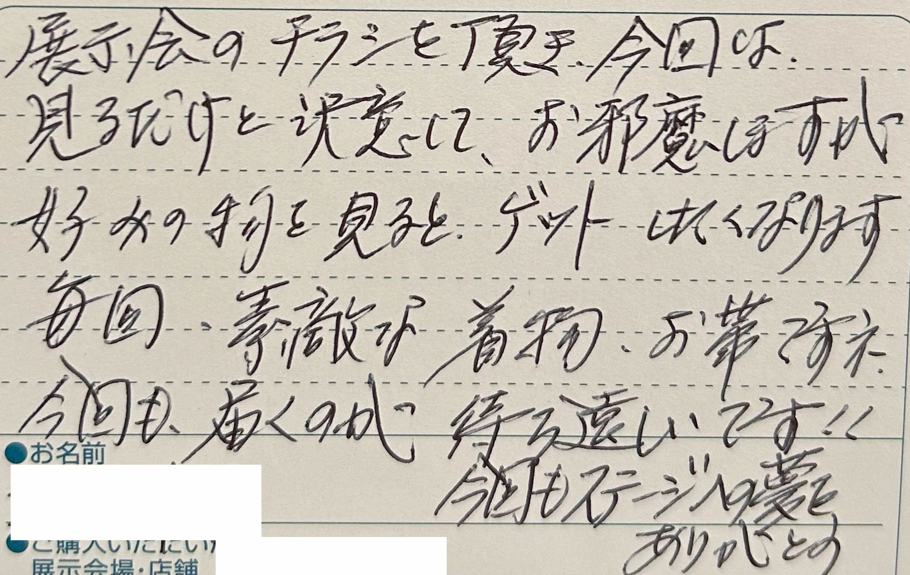 展示会のチラシを頂き、今回は、
見るだけと決意して、お邪魔しますが
好みの物を見ると、ゲットしたくなります
毎回、素敵な着物、お帯ですネ
今回も、届くのが待ち遠しいです!!
●お名前
今回もステージへの夢を
ありがとの
●ご購入いただいた
展示会場・店舗